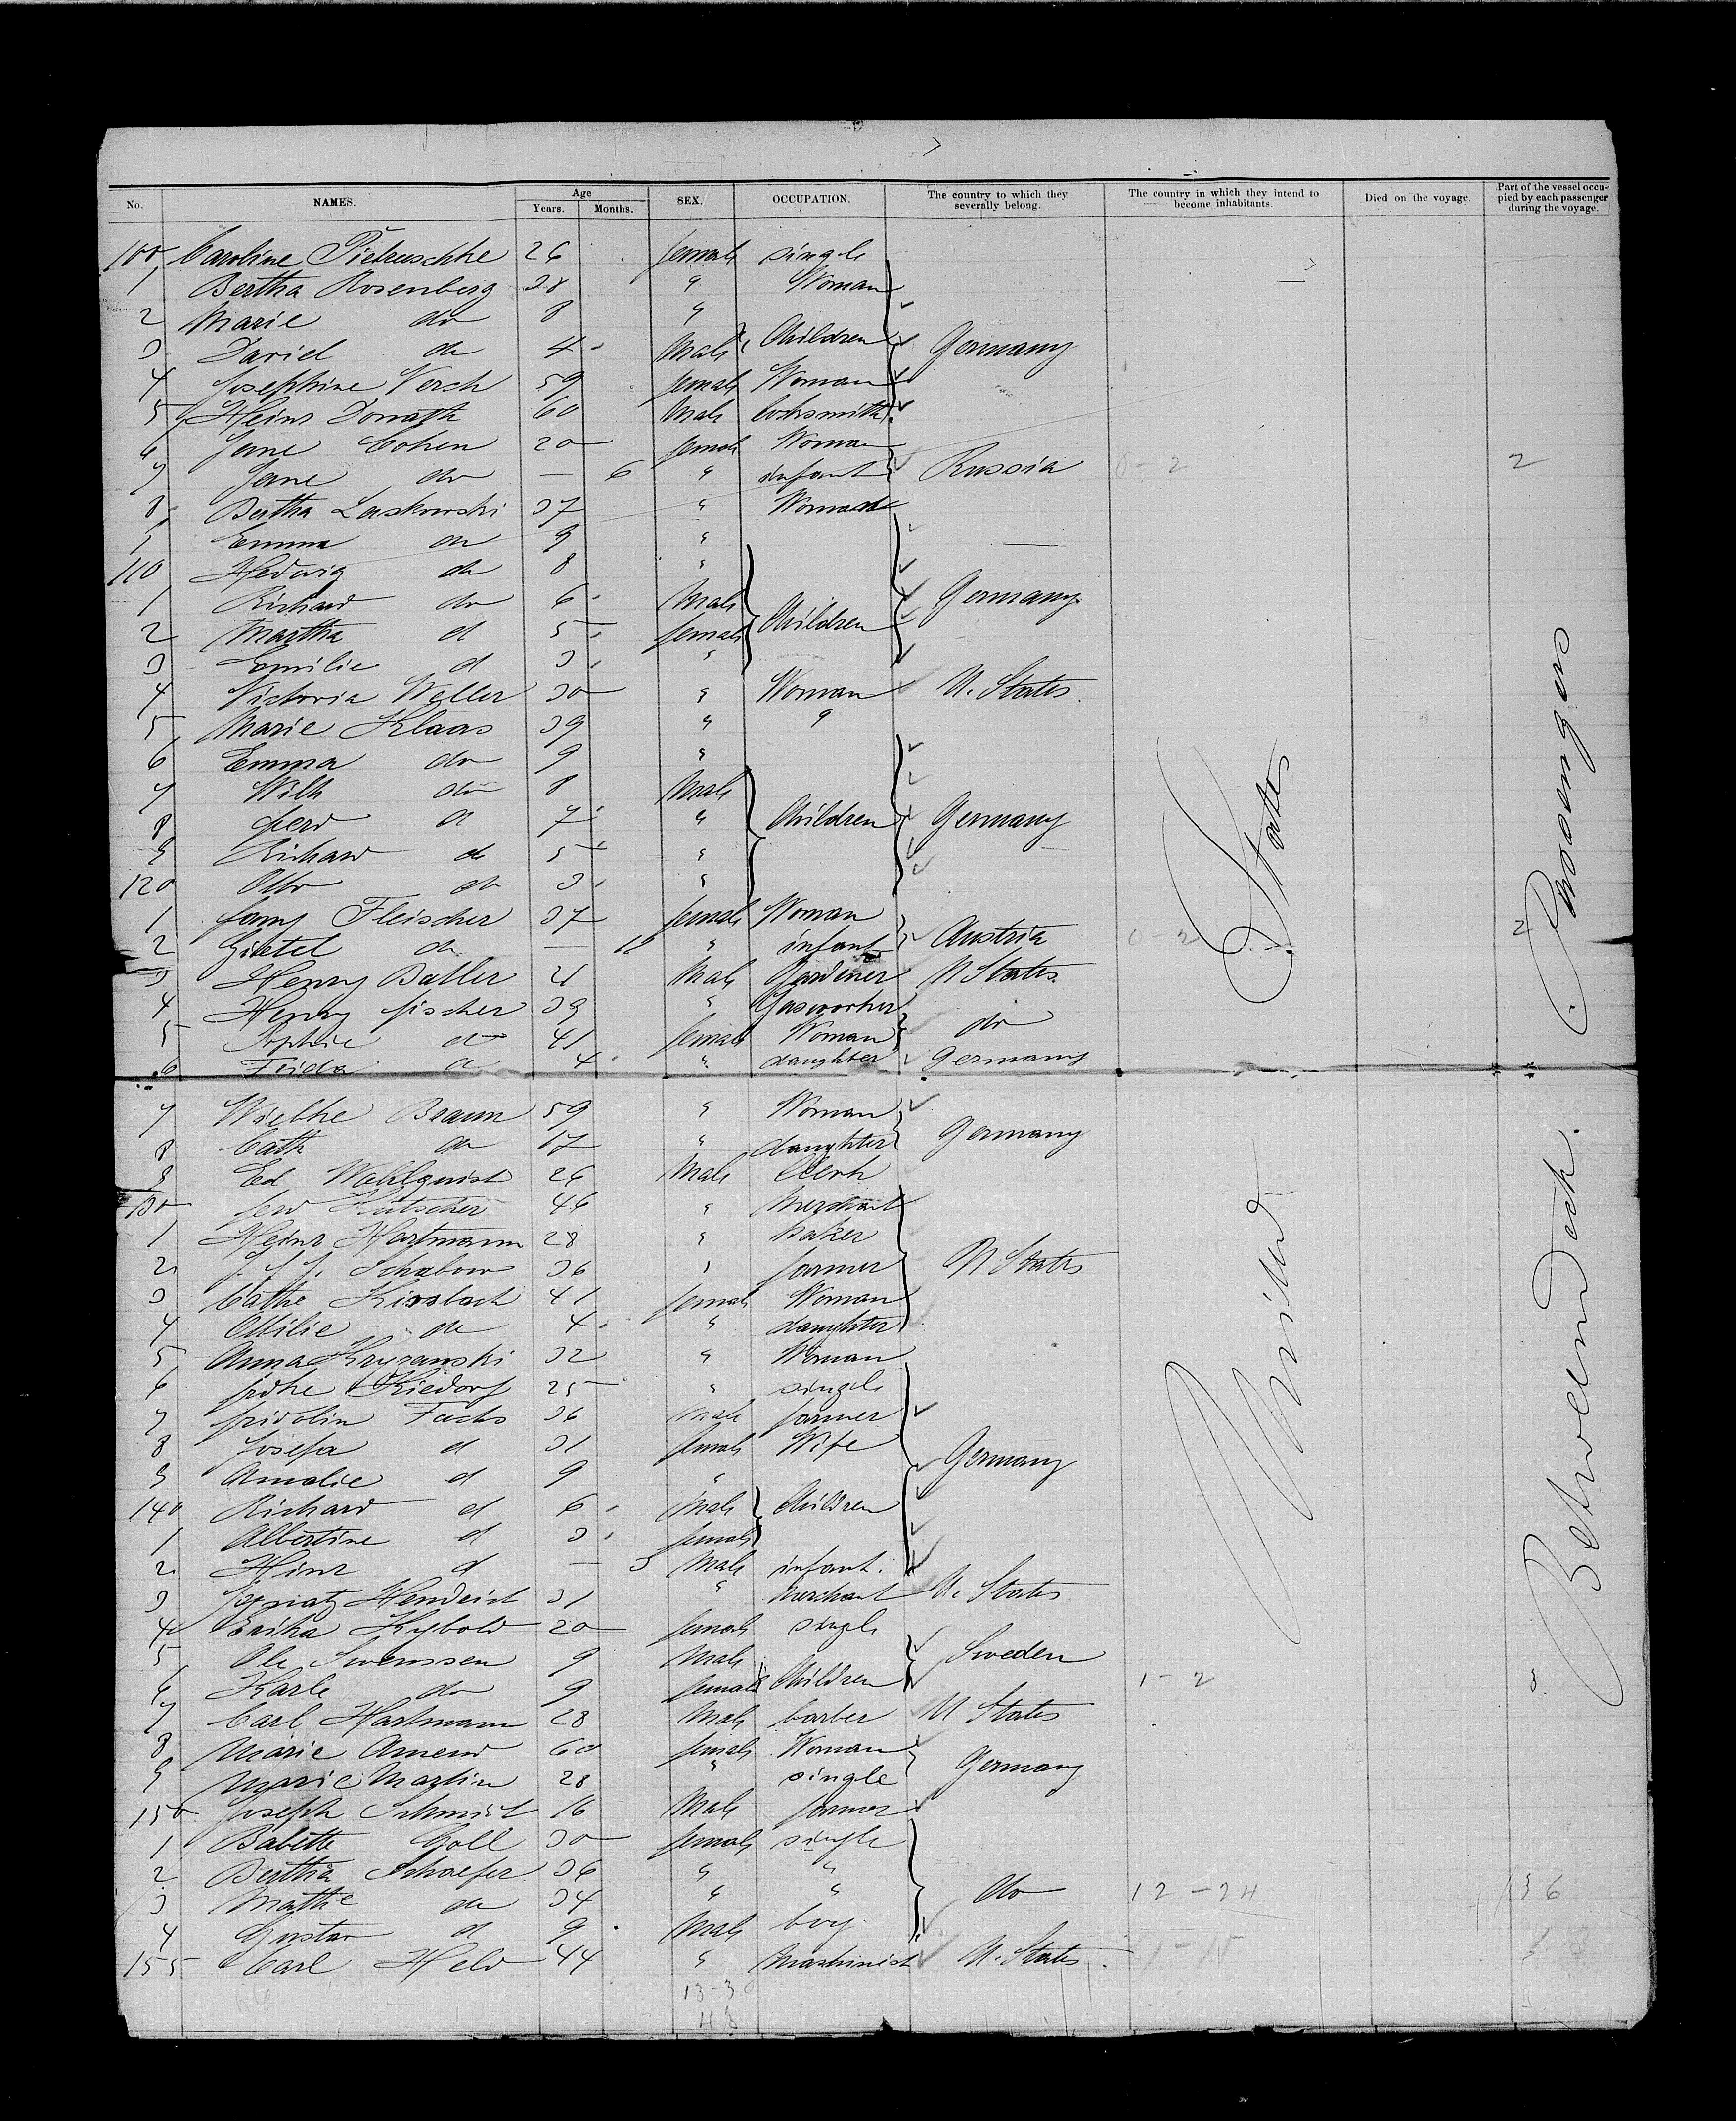 No. NAMES. Age Years. Months. SEX. OCCUPATION. The country to which they severally belong. The country in which they intend to become inhabitants. Died on the voyage. Part of the vessel occupied by each passenger during the voyage.
100 Caroline Pietruschke 26 female single
1 Bertha Rosenberg 38 " Woman
2 Marie do 8 "
3 David do 4 Male Children Germany
4 Josephine Verch 59 female Woman
5 Heinr Donath 60 Male locksmith
6 Jane Cohen 20 female Woman
7 Jane do — 6 " infant Russia 0-2 2
8 Bertha Laskowski 37 " Woman
9 Emma do 9 "
110 Hedwig do 8 "
1 Richard do 6 Male Germany
2 Martha d 5 female Children
3 Emilie d 3 "
4 Victoria Weller 30 " Woman U. States
5 Marie Klaas 39 " "
6 Emma do 9 "
7 Wilh do 8 Male
8 ferd d 7 " Children Germany
9 Richard do 5 "
120 Otto do 3 "
1 fany Fleischer 37 female Woman
2 Gietel do — 10 " infant Austria 0-2 2
3 Henry Baller 21 Male Gardener U States
4 Henry fischer 39 " Gasworker
5 Sophie do 41 female Woman do
6 Frida d 4 " daughter Germany
7 Wiebke Braun 59 " Woman
8 Cath do 17 " daughter Germany
9 Ed Wahlquist 26 Male Clerk
130 ferd Kutscher 46 " Merchant
1 Heinr Hartmann 28 " baker
2 Schabow 36 " farmer U States
3 Cathe Kirsbach 41 female Woman
4 Ottilie do 4 " daughter
5 Anna Kryzanski 32 " Woman
6 frdke Kiedorf 25 " single
7 fridolin Fuchs 36 Male farmer
8 Josefa d 31 female Wife Germany
9 Amalie d 9 "
140 Richard d 6 Male Children
1 Albertine d 3 female
2 Hinr d — 3 Male infant
3 Ignatz Hendrich 31 " Merchant U. States
4 Erika Kybold 20 female single
5 Ole Swenssen 9 Male Sweden
6 Karle do 9 female Children 1-2 3
7 Carl Hartmann 28 Male barber U States
8 Marie Amend 60 female Woman
9 Marie Martin 28 " single Germany
150 Joseph Schmidt 16 Male farmer
1 Babette Goll 30 female single
2 Bertha Schaefer 36 " "
3 Mathe do 34 " " do 12-24 136
4 Gustav d 9 Male boy
155 Carl Held 44 " Mashinist U. States
13-30
43
United States
Passengers
Between Deck.